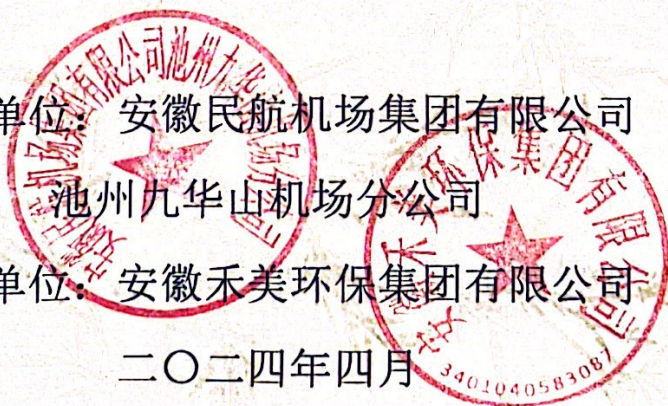 单位：安徽民航机场集团有限公司
池州九华山机场分公司
单位：安徽禾美环保集团有限公司
二〇二四年四月
安徽民航机场集团有限公司池州九华山机场分公司
安徽禾美环保集团有限公司
3401040583087